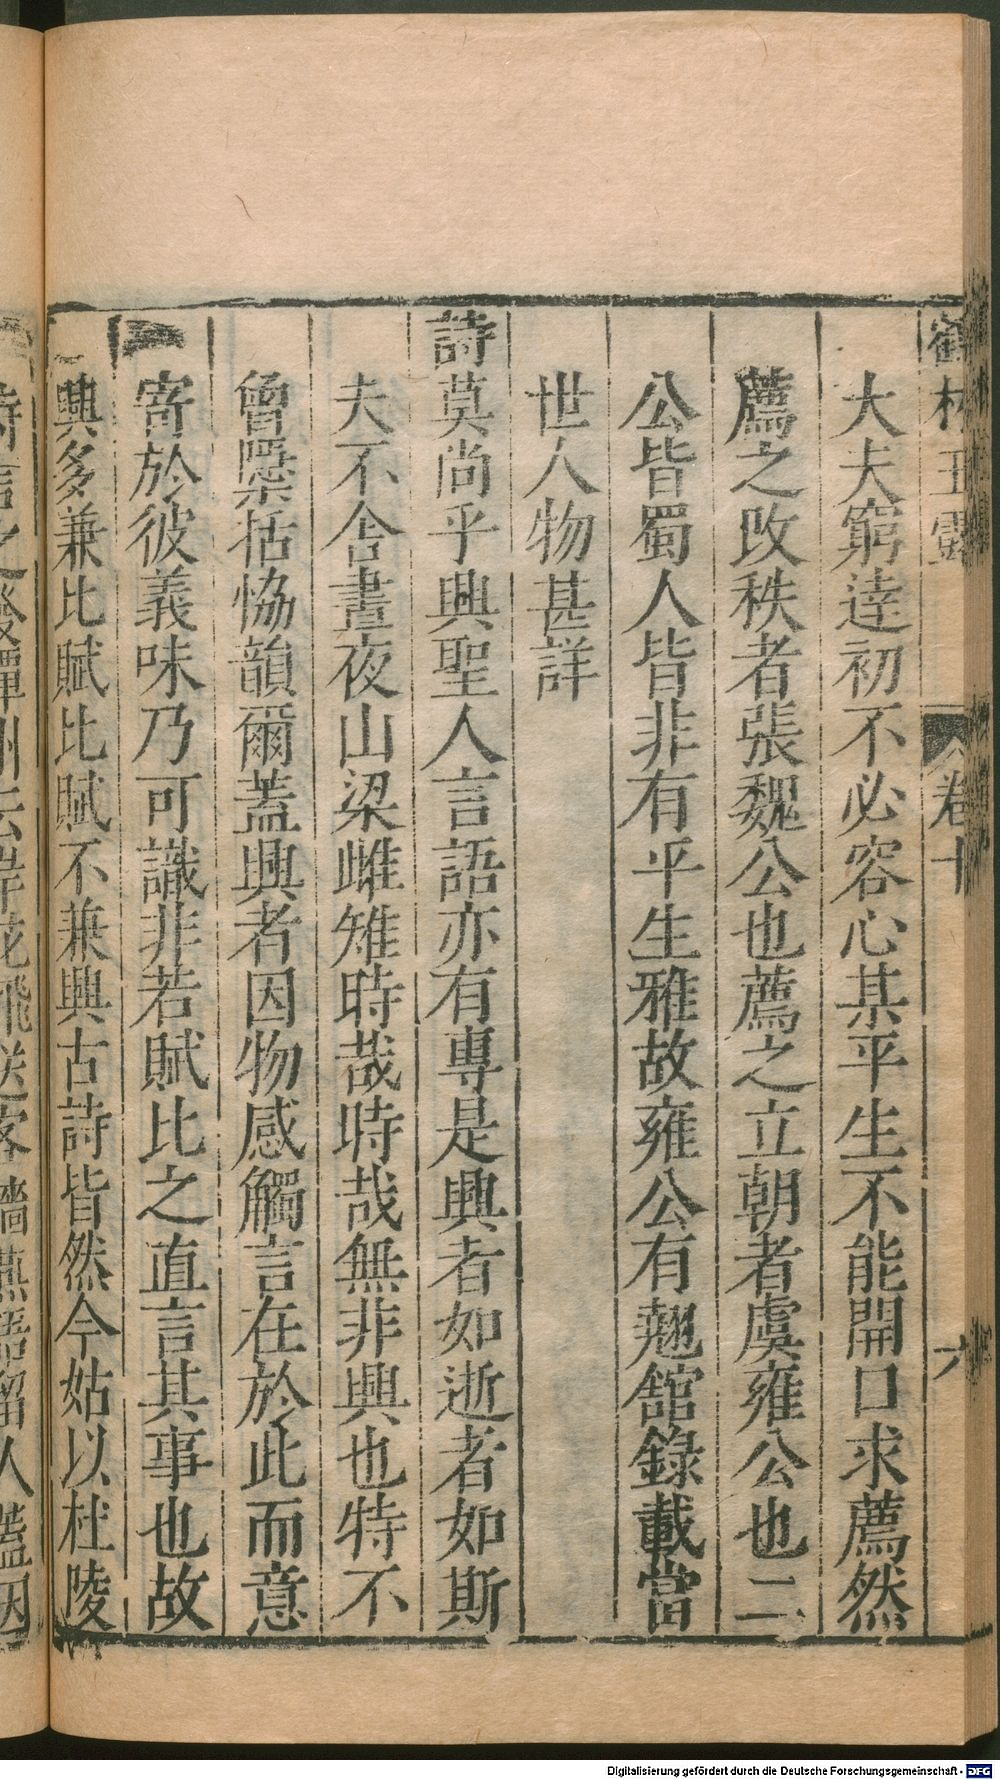 鶴林玉露 卷十 六
大夫窮達初不必容心某平生不能開口求薦然
薦之改秩者張魏公也薦之立朝者虞雍公也二
公皆蜀人皆非有平生雅故雍公有翹館錄載當
世人物甚詳
詩莫尚乎興聖人言語亦有專是興者如逝者如斯
夫不舍晝夜山梁雌雉時哉時哉無非興也特不
曾隱括恊韻爾蓋興者因物感觸言在於此而意
寄於彼義味乃可識非若賦比之直言其事也故
興多兼比賦比賦不兼興古詩皆然今姑以杜陵
詩言之發潭州云岸花飛送客檣燕語留人蓋因
Digitalisierung gefördert durch die Deutsche Forschungsgemeinschaft - DFG